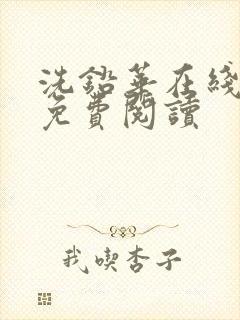 洗鉛華在綫
免費閱讀
我喫杏子